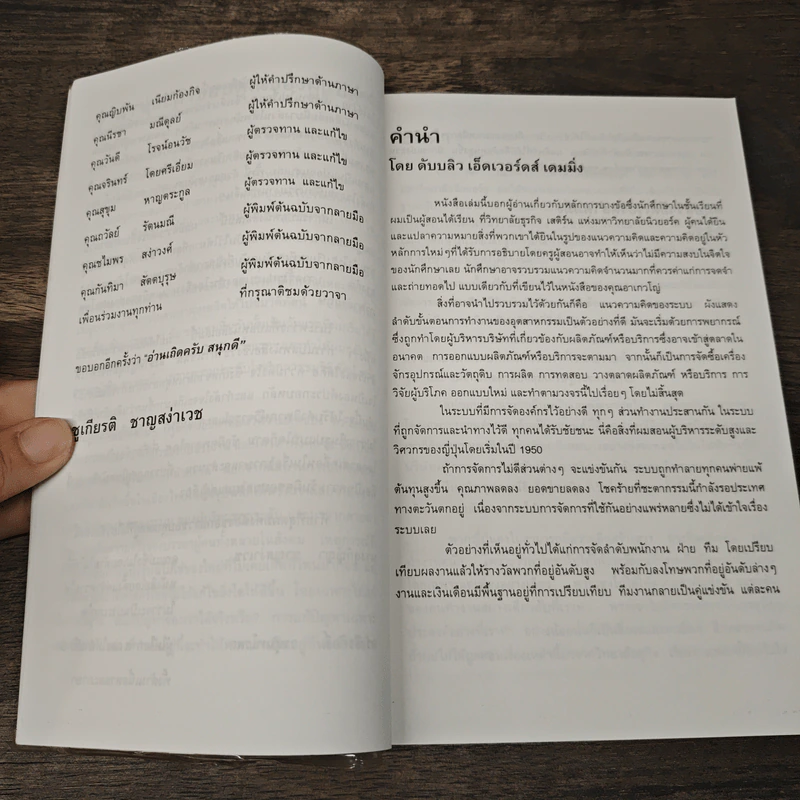 คุณญิบพัน เนียมก้องกิจ ผู้ให้คำปรึกษาด้านภาษา
คุณนีรชา มณีตุลย์ ผู้ให้คำปรึกษาด้านภาษา
คุณวันดี โรจน์อนวัช ผู้ตรวจทาน และแก้ไข
คุณจรินทร์ โดยศรีเอี่ยม ผู้ตรวจทาน และแก้ไข
คุณสุขุม หาญตระกูล ผู้ตรวจทาน และแก้ไข
คุณถวัลย์ รัตนมณี ผู้พิมพ์ต้นฉบับจากลายมือ
คุณชไมพร สง่าวงศ์ ผู้พิมพ์ต้นฉบับจากลายมือ
คุณกันทิมา สัตตบุรุษ ผู้พิมพ์ต้นฉบับจากลายมือ
เพื่อนร่วมงานทุกท่าน ที่กรุณาติชมด้วยวาจา
ขอบอกอีกครั้งว่า "อ่านเถิดครับ สนุกดี"
ชูเกียรติ ชาญสง่าเวช
คำนำ
โดย ดับบลิว เอ็ดเวอร์ดส์ เดมมิ่ง
หนังสือเล่มนี้บอกผู้อ่านเกี่ยวกับหลักการบางข้อซึ่งนักศึกษาในชั้นเรียนที่
ผมเป็นผู้สอนได้เรียน ที่วิทยาลัยธุรกิจ เสติร์น แห่งมหาวิทยาลัยนิวยอร์ค ผู้คนได้ยิน
และแปลความหมายสิ่งที่พวกเขาได้ยินในรูปของแนวความคิดและความคิดอยู่ในหัว
หลักการใหม่ๆที่ได้รับการอธิบายโดยครูผู้สอนอาจทำให้เห็นว่าไม่มีความสงบในจิตใจ
ของนักศึกษาเลย นักศึกษาอาจรวบรวมแนวความคิดจำนวนมากที่ควรค่าแก่การจดจำ
และถ่ายทอดไป แบบเดียวกับที่เขียนไว้ในหนังสือของคุณอาเกวโญ่
สิ่งที่อาจนำไปรวบรวมไว้ด้วยกันก็คือ แนวความคิดของระบบ ผังแสดง
ลำดับขั้นตอนการทำงานของอุตสาหกรรมเป็นตัวอย่างที่ดี มันจะเริ่มด้วยการพยากรณ์
ซึ่งถูกทำโดยผู้บริหารบริษัทที่เกี่ยวข้องกับผลิตภัณฑ์หรือบริการซึ่งอาจเข้าสู่ตลาดใน
อนาคต การออกแบบผลิตภัณฑ์หรือบริการจะตามมา จากนั้นก็เป็นการจัดซื้อเครื่อง
จักรอุปกรณ์และวัตถุดิบ การผลิต การทดสอบ วางตลาดผลิตภัณฑ์ หรือบริการ การ
วิจัยผู้บริโภค ออกแบบใหม่ และทำตามวงจรนี้ไปเรื่อยๆ โดยไม่สิ้นสุด
ในระบบที่มีการจัดองค์กรไว้อย่างดี ทุกๆ ส่วนทำงานประสานกัน ในระบบ
ที่ถูกจัดการและนำทางไว้ดี ทุกคนได้รับชัยชนะ นี่คือสิ่งที่ผมสอนผู้บริหารระดับสูงและ
วิศวกรของญี่ปุ่นโดยเริ่มในปี 1950
ถ้าการจัดการไม่ดีส่วนต่างๆ จะแข่งขันกัน ระบบถูกทำลายทุกคนพ่ายแพ้
ต้นทุนสูงขึ้น คุณภาพลดลง ยอดขายลดลง โชคร้ายที่ชะตากรรมนี้กำลังรอประเทศ
ทางตะวันตกอยู่ เนื่องจากระบบการจัดการที่ใช้กันอย่างแพร่หลายซึ่งไม่ได้เข้าใจเรื่อง
ระบบเลย
ตัวอย่างที่เห็นอยู่ทั่วไปได้แก่การจัดลำดับพนักงาน ฝ่าย ทีม โดยเปรียบ
เทียบผลงานแล้วให้รางวัลพวกที่อยู่อันดับสูง พร้อมกับลงโทษพวกที่อยู่อันดับล่างๆ
งานและเงินเดือนมีพื้นฐานอยู่ที่การเปรียบเทียบ ทีมงานกลายเป็นคู่แข่งขัน แต่ละคน